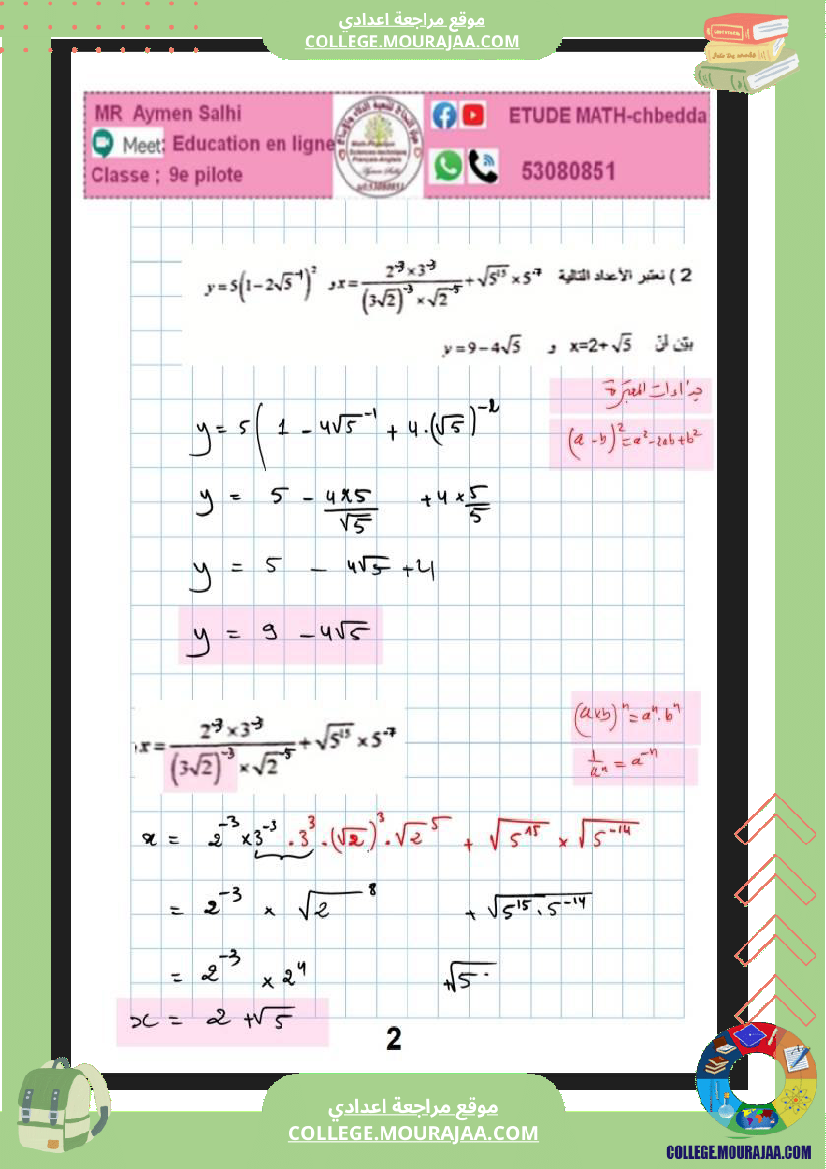 موقع مراجعة اعدادي
COLLEGE.MOURAJAA.COM
MR Aymen Salhi
Meet: Education en ligne
Classe ; 9e pilote
ETUDE MATH-chbedda
53080851
2 ) نعتبر الأعداد التالية x = (2⁻³ × 3⁻³)/((3√2)⁻³ × √2⁻⁵) + √5¹⁵ × 5⁻⁷ و y = 5(1 − 2√5⁻¹)²
بيّن أنّ x=2+√5 و y = 9 − 4√5
جداءات المعتبرة
(a − b)² = a² − 2ab + b²
y = 5( 1 − 4√5⁻¹ + 4.(√5)⁻²
y = 5 − 4×5/√5 + 4 × 5/5
y = 5 − 4√5 + 4
y = 9 − 4√5
x = (2⁻³ × 3⁻³)/((3√2)⁻³ × √2⁻⁵) + √5¹⁵ × 5⁻⁷
(a×b)ⁿ = aⁿ . bⁿ
1/aⁿ = a⁻ⁿ
x = 2⁻³ × 3⁻³ . 3³ . (√2)³ . √2⁵ + √5¹⁵ × √5⁻¹⁴
= 2⁻³ × √2⁸ + √5¹⁵ . 5⁻¹⁴
= 2⁻³ × 2⁴ + √5
x = 2 + √5
2
موقع مراجعة اعدادي
COLLEGE.MOURAJAA.COM
COLLEGE.MOURAJAA.COM